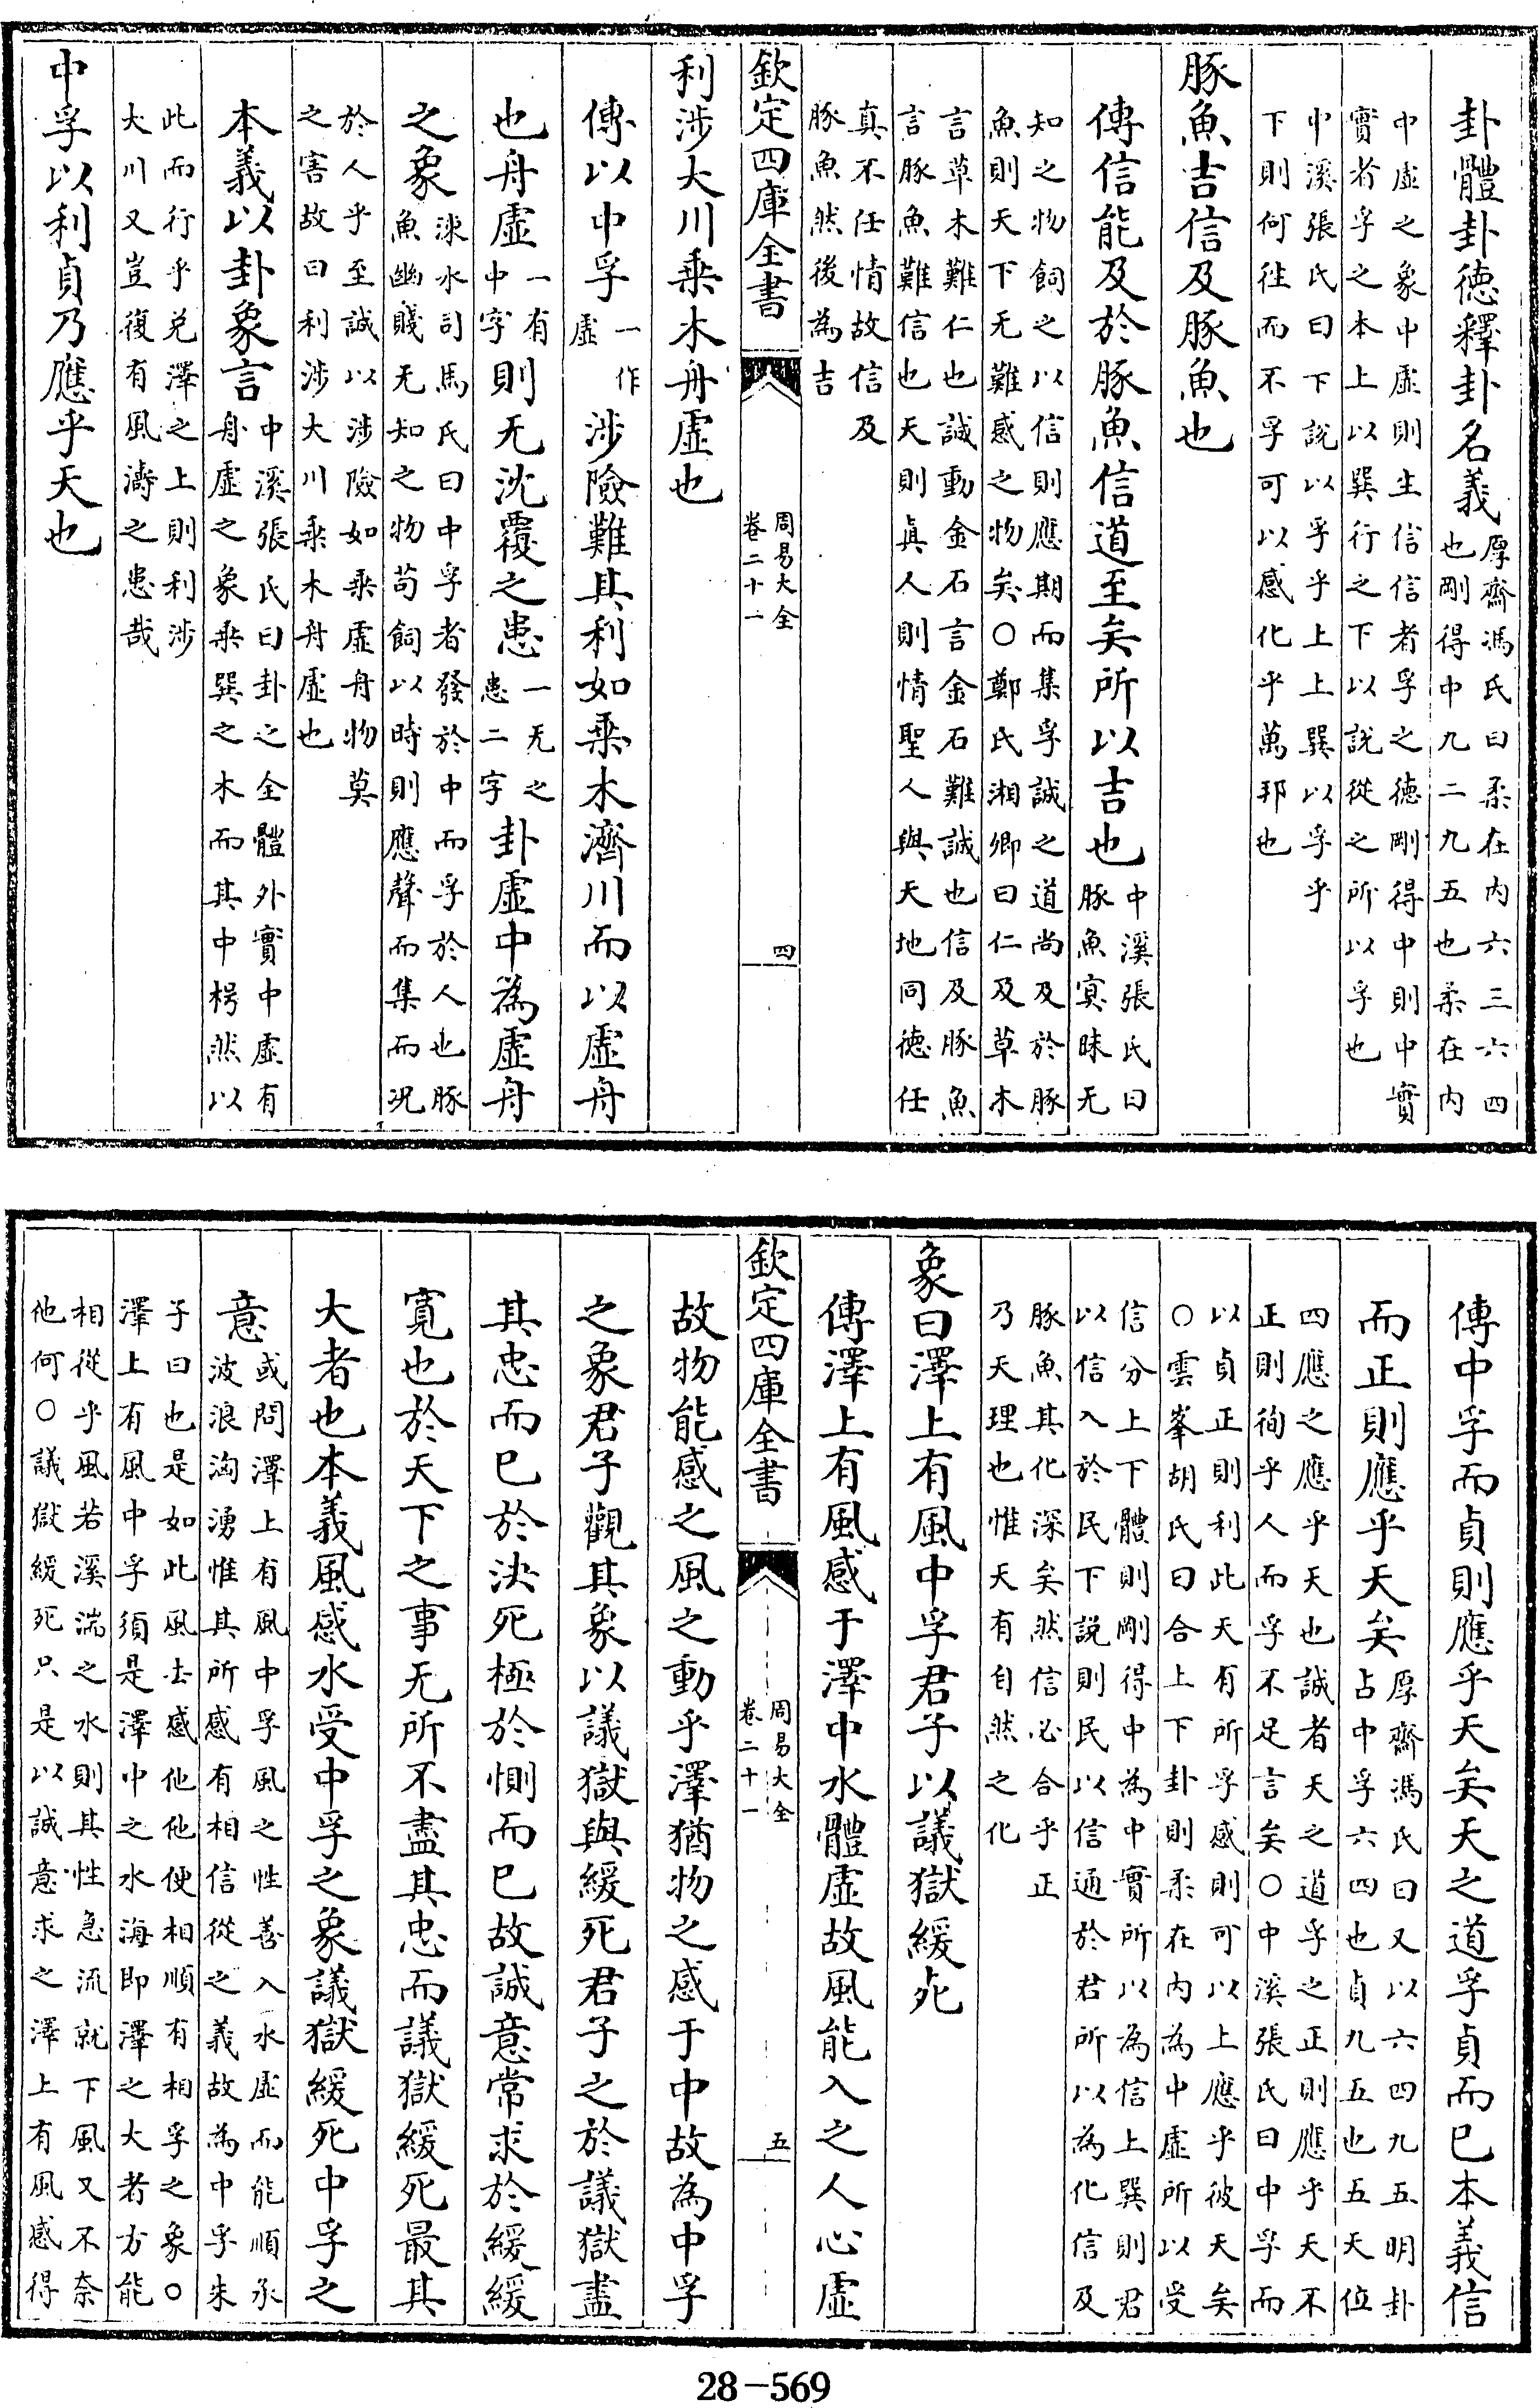 卦體卦德釋卦名義厚齋馮氏曰柔在内六三六四
也剛得中九二九五也柔在内
中虛之象中虛則生信信者孚之德剛得中則中實
實者孚之本上以巽行之下以說從之所以孚也
中溪張氏曰下說以孚乎上上巽以孚乎
下則何往而不孚可以感化乎萬邦也
豚魚吉信及豚魚也
傳信能及於豚魚信道至矣所以吉也中溪張氏曰
豚魚㝠昧无
知之物飼之以信則應期而集孚誠之道尚及於豚
魚則天下无難感之物矣○鄭氏湘卿曰仁及草木
言草木難仁也誠動金石言金石難誠也信及豚魚
言豚魚難信也天則真人則情聖人與天地同德任
真不任情故信及
豚魚然後為吉
欽定四庫全書
周易大全
卷二十一
四
利涉大川乘木舟虛也
傳以中孚一作
虛涉險難其利如乘木濟川而以虛舟
也舟虛一有
中字則无沈覆之患一无之
患二字卦虛中為虛舟
之象涑水司馬氏曰中孚者發於中而孚於人也豚
魚幽賤无知之物苟飼以時則應聲而集而况
於人乎至誠以涉險如乘虛舟物莫
之害故曰利涉大川乘木舟虛也
本義以卦象言中溪張氏曰卦之全體外實中虛有
舟虛之象乘巽之木而其中枵然以
此而行乎兌澤之上則利涉
大川又豈復有風濤之患哉
中孚以利貞乃應乎天也
傳中孚而貞則應乎天矣天之道孚貞而已本義信
而正則應乎天矣厚齋馮氏曰又以六四九五明卦
占中孚六四也貞九五也五天位
四應之應乎天也誠者天之道孚之正則應乎天不
正則徇乎人而孚不足言矣○中溪張氏曰中孚而
以貞正則利此天有所孚感則可以上應乎彼天矣
○雲峯胡氏曰合上下卦則柔在内為中虛所以受
信分上下體則剛得中為中實所以為信上巽則君
以信入於民下説則民以信通於君所以為化信及
豚魚其化深矣然信必合乎正
乃天理也惟天有自然之化
象曰澤上有風中孚君子以議獄緩死
傳澤上有風感于澤中水體虛故風能入之人心虛
欽定四庫全書
周易大全
卷二十一
五
故物能感之風之動乎澤猶物之感于中故為中孚
之象君子觀其象以議獄與緩死君子之於議獄盡
其忠而已於決死極於惻而已故誠意常求於緩緩
寛也於天下之事无所不盡其忠而議獄緩死最其
大者也本義風感水受中孚之象議獄緩死中孚之
意或問澤上有風中孚風之性善入水虛而能順承
波浪洶湧惟其所感有相信從之義故為中孚朱
子曰也是如此風去感他他便相順有相孚之象○
澤上有風中孚須是澤中之水海即澤之大者方能
相從乎風若溪湍之水則其性急流就下風又不奈
他何○議獄緩死只是以誠意求之澤上有風感得
28-569